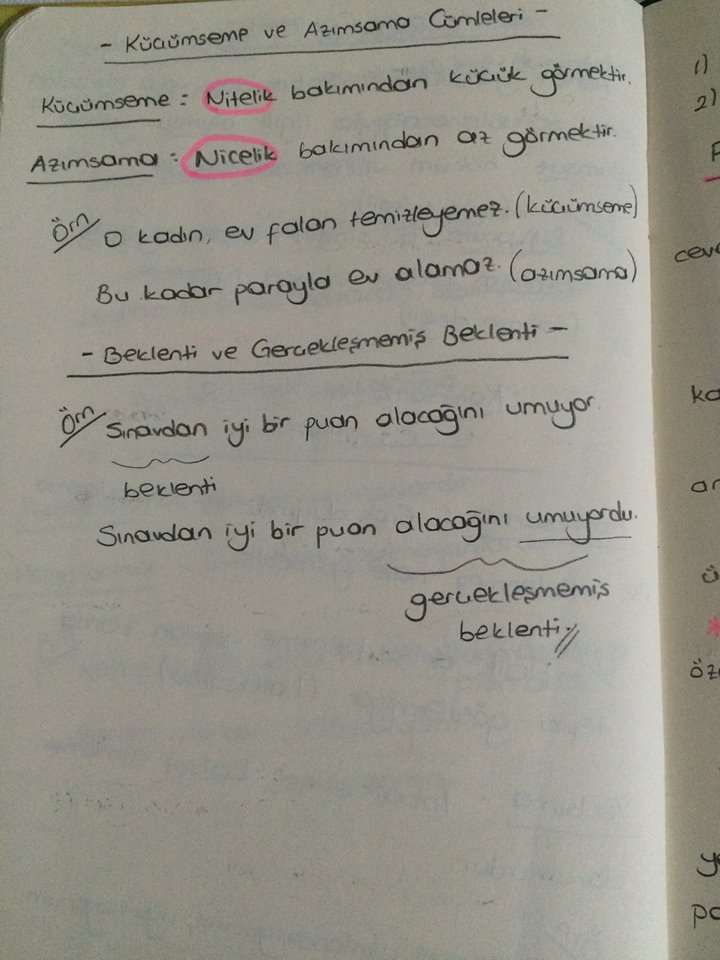 - Küçümseme ve Azımsama Cümleleri -
Küçümseme : Nitelik bakımından küçük görmektir.
Azımsama : Nicelik bakımından az görmektir.
Örn O kadın, ev falan temizleyemez. (küçümseme)
Bu kadar parayla ev alamaz. (azımsama)
- Beklenti ve Gerçekleşmemiş Beklenti -
Örn Sınavdan iyi bir puan alacağını umuyor.
beklenti
Sınavdan iyi bir puan alacağını umuyordu.
gerçekleşmemiş
beklenti
1)
2)